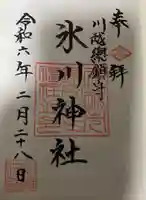 奉拝
川越總鎮守
氷川神社
令和六年二月二十八日